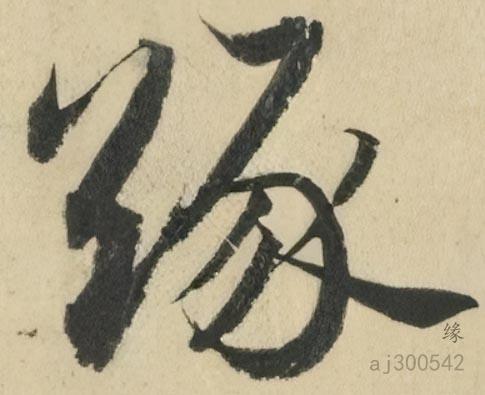 緣
缘
aj300542